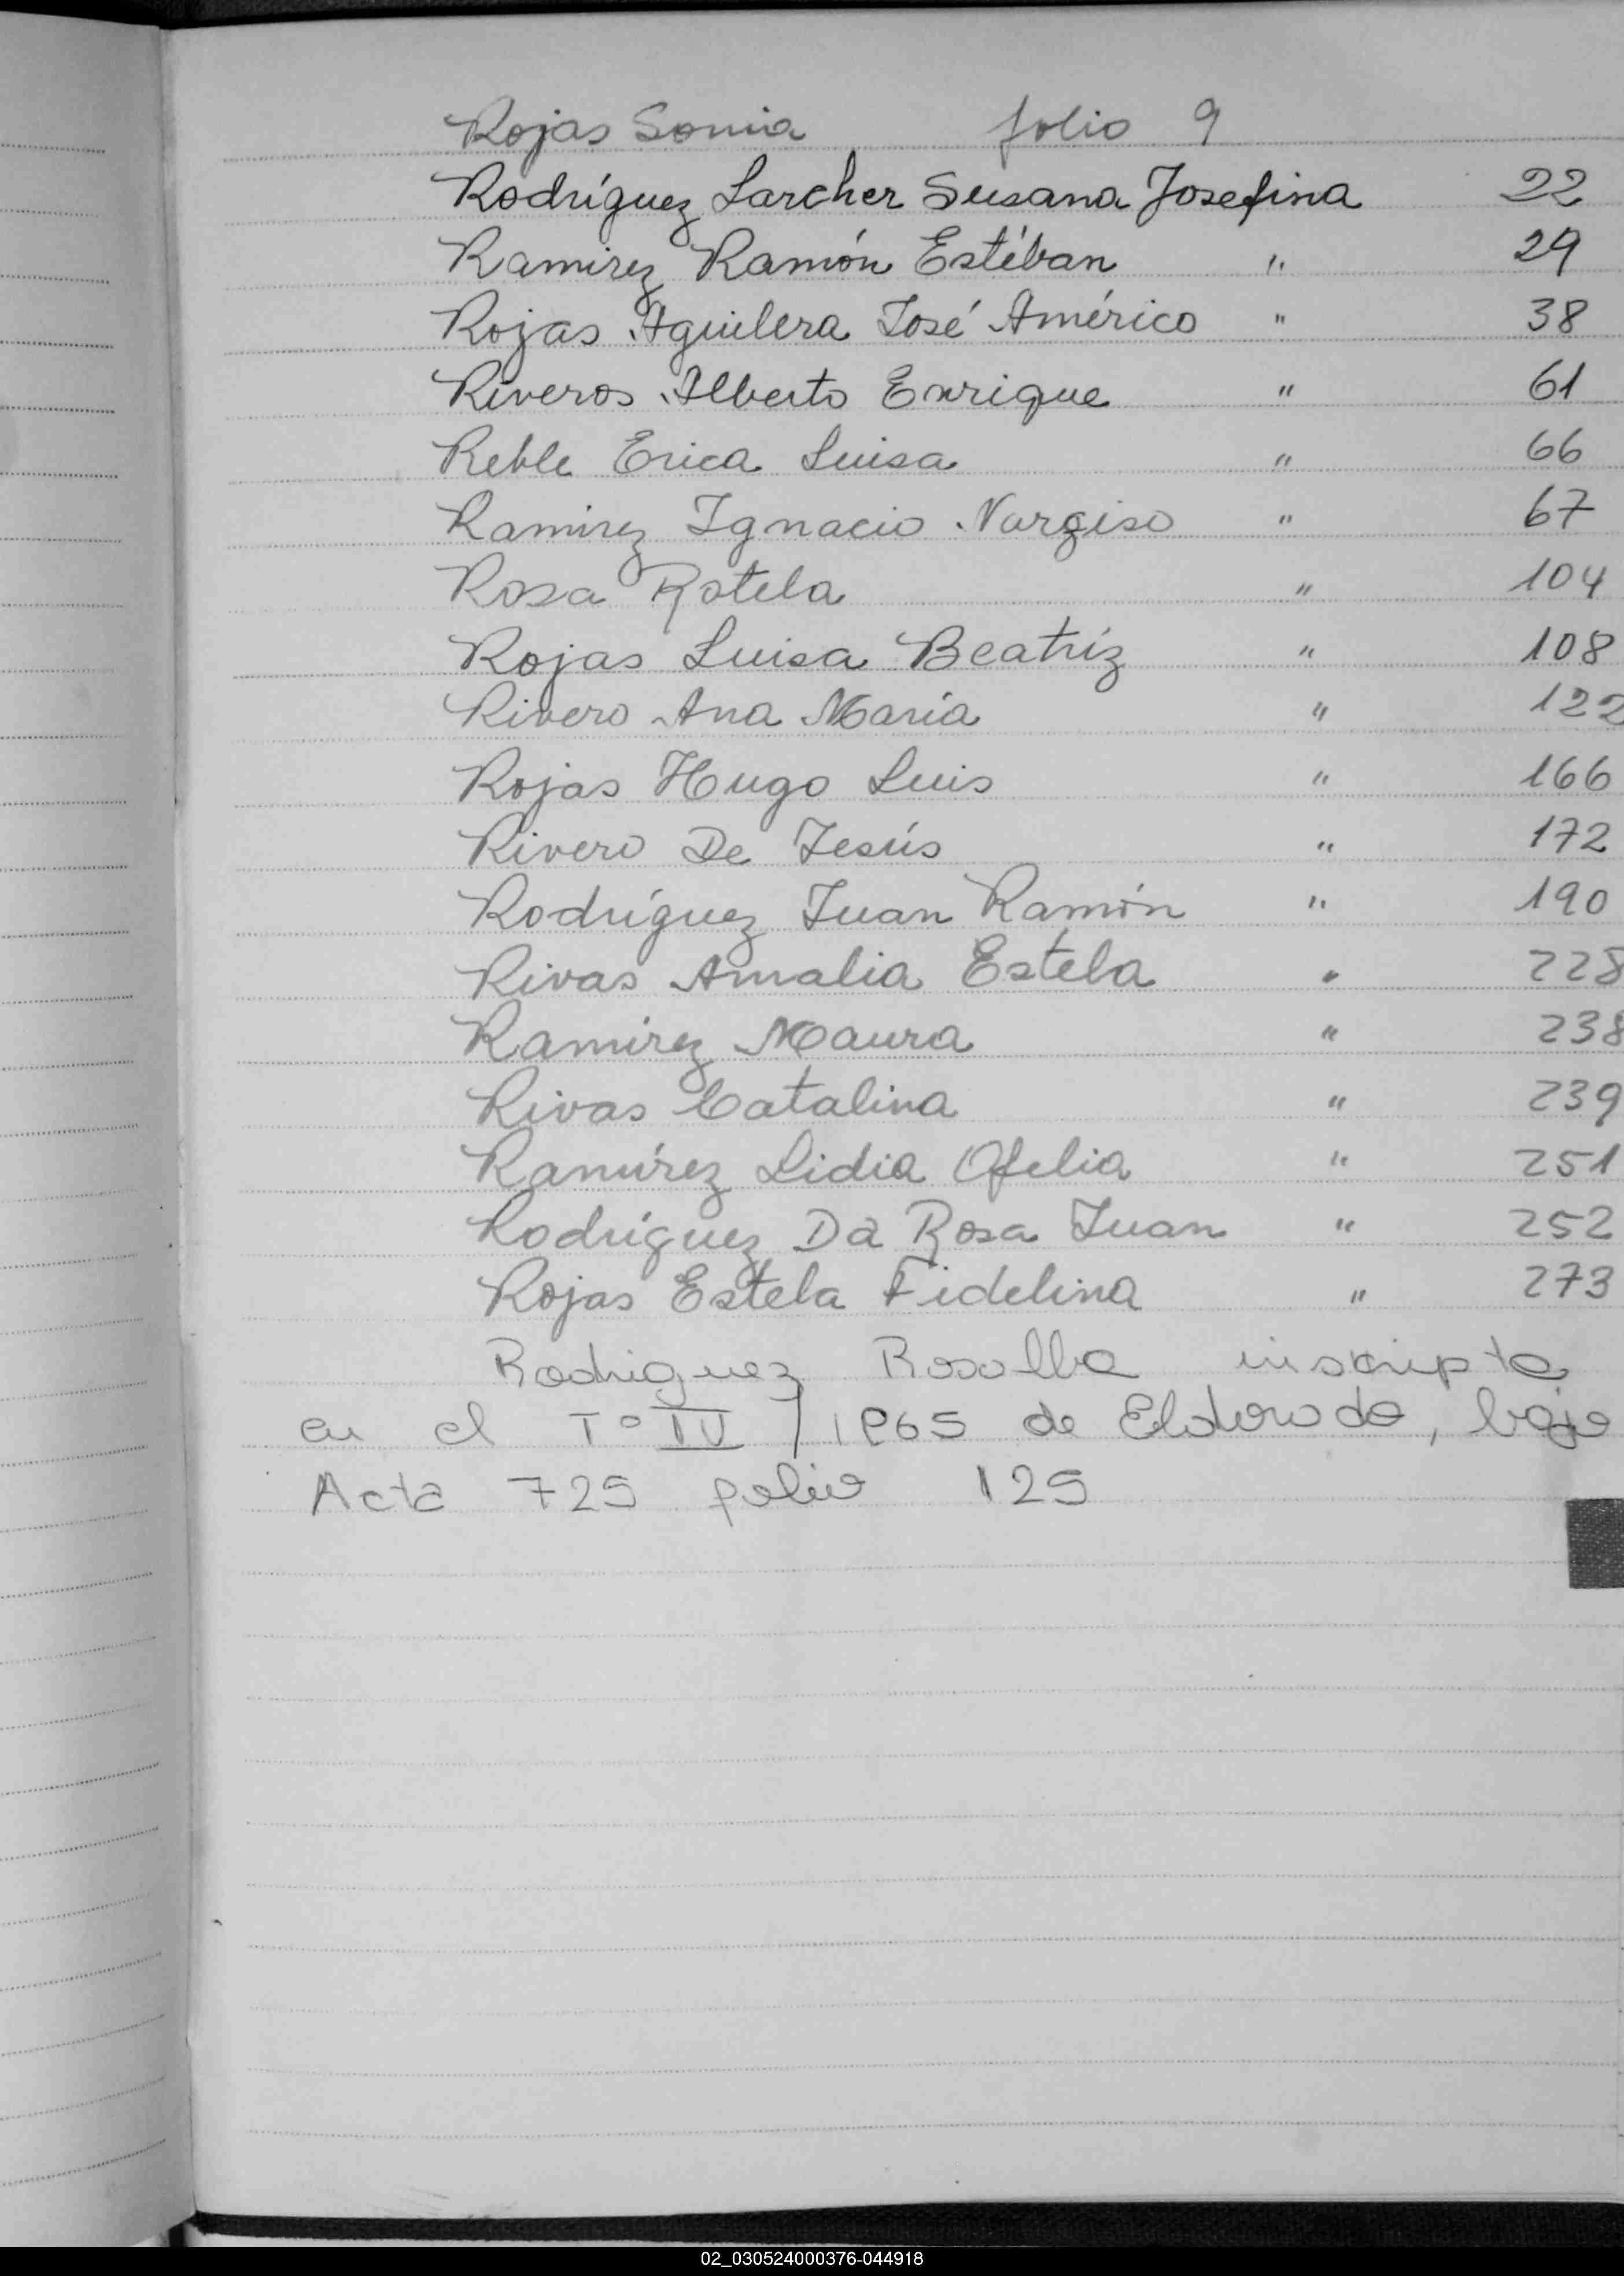 Rojas Sonia folio 9
Rodríguez Larcher Susana Josefina 22
Ramirez Ramón Estéban " 29
Rojas Aguilera José Américo " 38
Riveros Alberto Enrique " 61
Reble Erica Luisa " 66
Ramirez Ignacio Nargiso " 67
Rosa Rotela " 104
Rojas Luisa Beatríz " 108
Rivero Ana María " 122
Rojas Hugo Luis " 166
Rivero De Jesús " 172
Rodríguez Juan Ramón " 190
Rivas Amalia Estela " 228
Ramírez Maura " 238
Rivas Catalina " 239
Ramírez Lidia Ofelia " 251
Rodríguez Da Rosa Juan " 252
Rojas Estela Fidelina " 273
Rodriguez Rosalba inscripta
en el T° IV / 1965 de Eldorado, bajo
Acta 725 folio 125
02_030524000376-044918